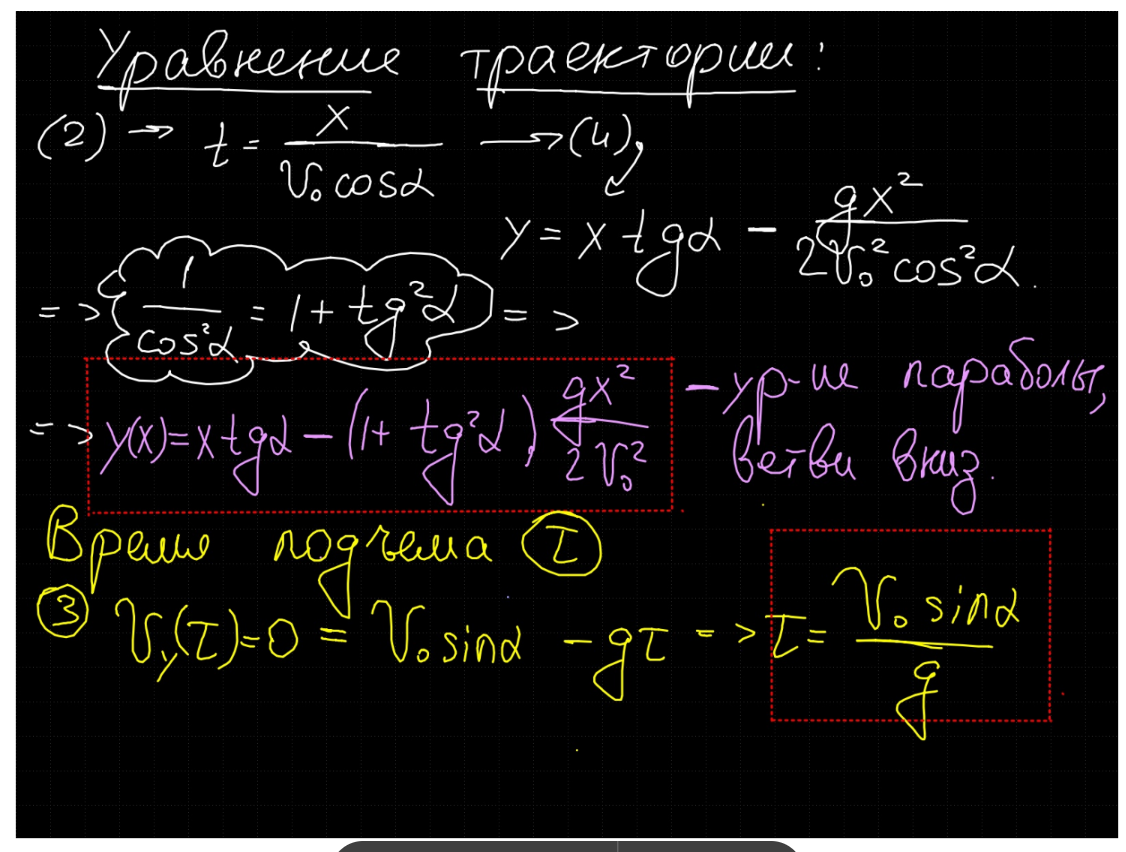 Уравнение траектории:
(2) → t = x / (V₀ cosα) → (4),
y = x tgα − gx² / (2V₀² cos²α).
=> 1 / cos²α = 1 + tg²α =>
=> y(x) = x tgα − (1 + tg²α) · gx² / (2V₀²) – ур-ие параболы,
ветви вниз.
Время подъема τ
③ Vy(τ) = 0 = V₀ sinα − gτ => τ = V₀ sinα / g